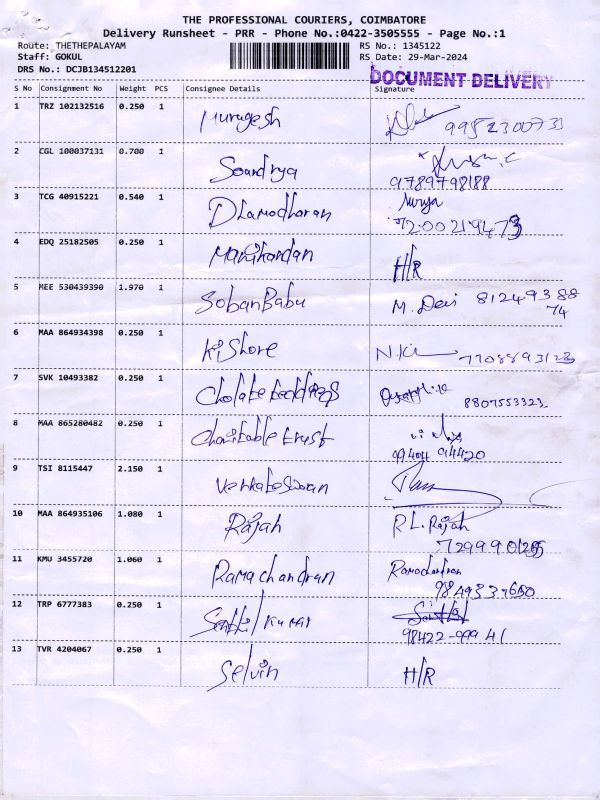 THE PROFESSIONAL COURIERS, COIMBATORE
Delivery Runsheet - PRR - Phone No.:0422-3505555 - Page No.:1
Route: THETHEPALAYAM RS No.: 1345122
Staff: GOKUL RS Date: 29-Mar-2024
DRS No.: DCJB134512201 DOCUMENT DELIVERY
S No Consignment No Weight PCS Consignee Details Signature
1 TRZ 102132516 0.250 1 Murugesh
2 CGL 100037131 0.700 1 Soundrya
9789798188
3 TCG 40915221 0.540 1 Dhamodharan Surya
7200219473
4 EDQ 25182505 0.250 1 Manikandan H/R
5 MEE 530439390 1.970 1 SobanBabu M. Devi 81249388
74
6 MAA 864934398 0.250 1 Kishore
7708893123
7 SVK 10493382 0.250 1
8807553323
8 MAA 865280482 0.250 1 Charitable trust
99404 94420
9 TSI 8115447 2.150 1 Venkateswaran
10 MAA 864935106 1.080 1 Rajah R L. Rajah
11 KMU 3455720 1.060 1 Ramachandran Ramachandran
12 TRP 6777383 0.250 1 Senthil Kumar
98422-99941
13 TVR 4204067 0.250 1 Selvin H/R